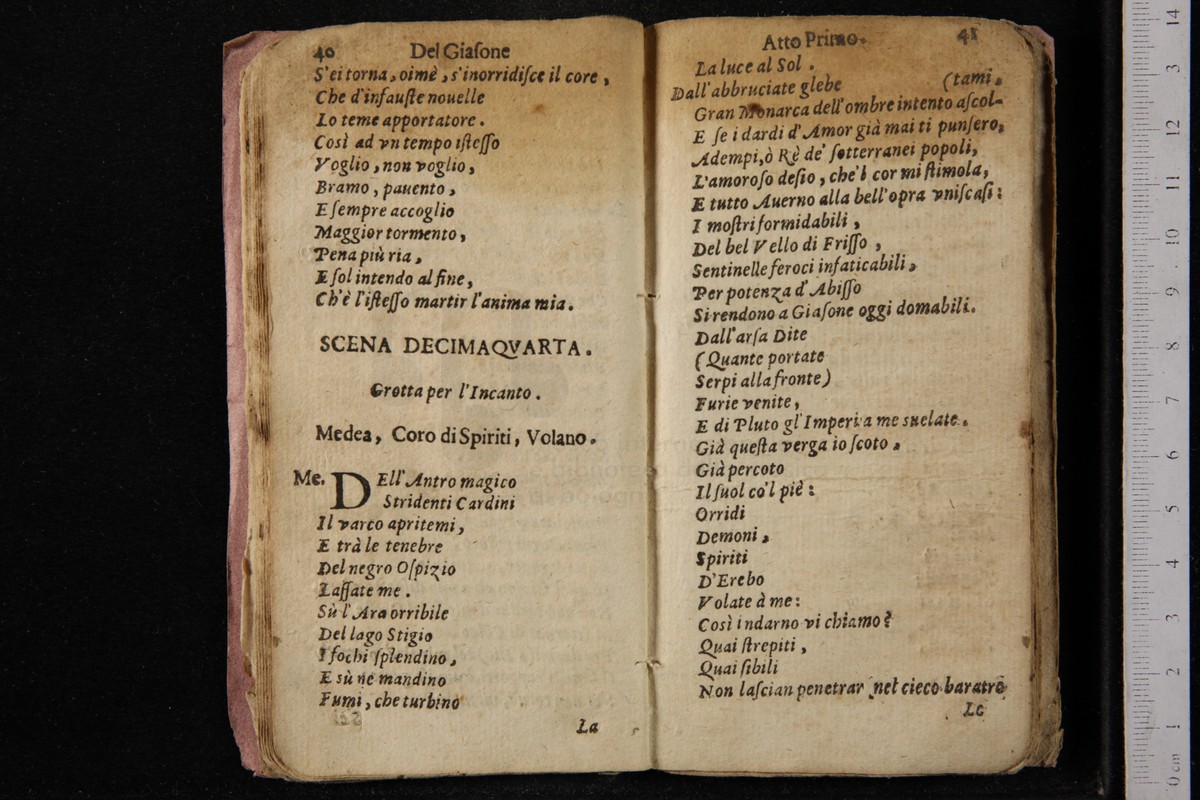 40 Del Giaſone
S'ei torna, oimè, s'inorridiſce il core,
Che d'infauſte nouelle
Lo teme apportatore.
Così ad vn tempo iſteſſo
Voglio, non voglio,
Bramo, pauento,
E ſempre accoglio
Maggior tormento,
Pena più ria,
E ſol intendo al fine,
Ch'è l'iſteſſo martir l'anima mia.
SCENA DECIMAQVARTA.
Grotta per l'Incanto.
Medea, Coro di Spiriti, Volano.
Me. DEll'Antro magico
Stridenti Cardini
Il varco apritemi,
E trà le tenebre
Del negro Oſpizio
Laſſate me.
Sù l'Ara orribile
Del lago Stigio
I fochi ſplendino,
E sù ne mandino
Fumi, che turbino
La
Atto Primo. 41
La luce al Sol.
Dall'abbruciate glebe (tami,
Gran Monarca dell'ombre intento aſcol-
E ſe i dardi d'Amor già mai ti punſero,
Adempi, ò Rè de' ſotterranei popoli,
L'amoroſo deſio, che'l cor mi ſtimola,
E tutto Auerno alla bell'opra vniſcaſi:
I moſtri formidabili,
Del bel Vello di Friſſo,
Sentinelle feroci infaticabili,
Per potenza d'Abiſſo
Si rendono a Giaſone oggi domabili.
Dall'arſa Dite
(Quante portate
Serpi alla fronte)
Furie venite,
E di Pluto gl'Imperi a me suelate.
Già queſta verga io ſcoto,
Già percoto
Il ſuol co'l piè:
Orridi
Demoni,
Spiriti
D'Erebo
Volate à me:
Così indarno vi chiamo?
Quai ſtrepiti,
Quai ſibili
Non laſcian penetrar nel cieco baratro
Le